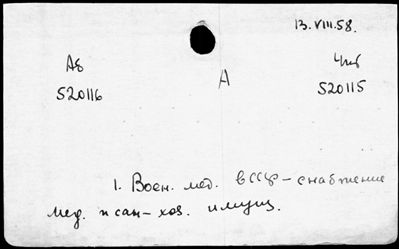 13.VIII.58.
Аб
520116
А
Чит
520115
1. Воен. мед. в СССР – снабжение
мед. и сан-хоз. имущ.